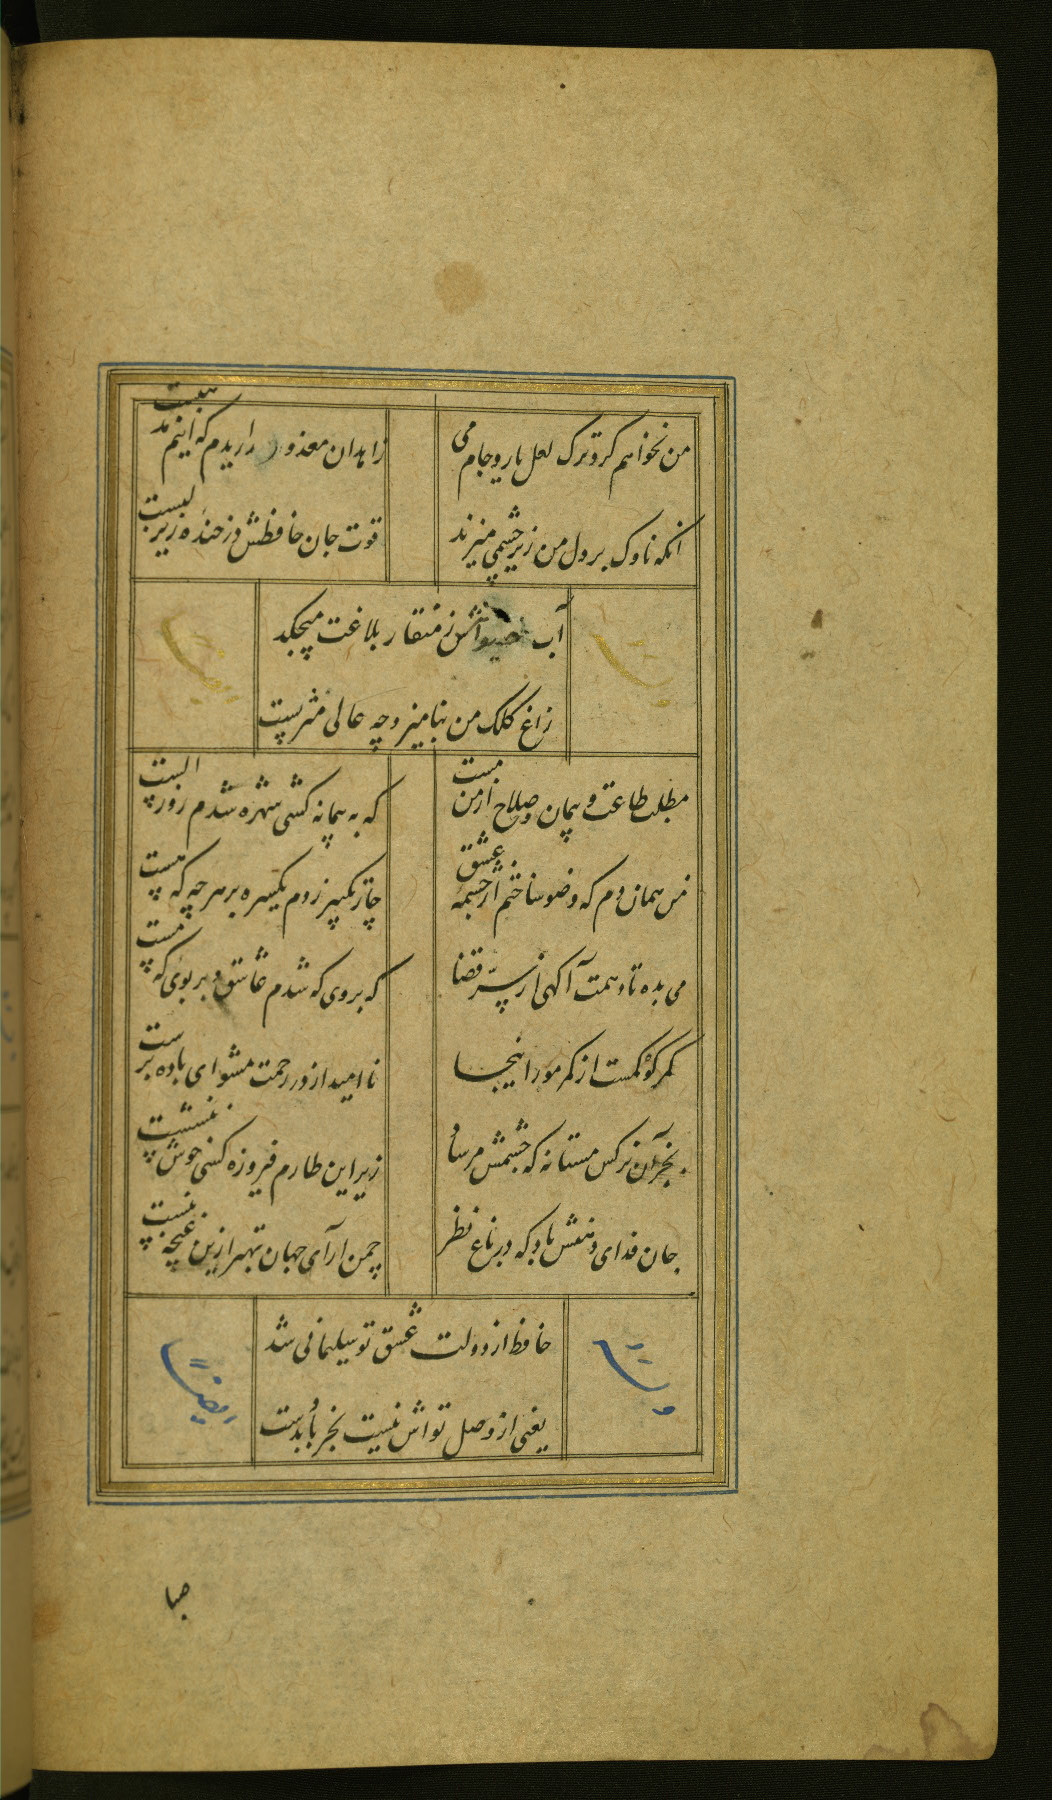 من نخواهم کرد ترک لعل یار و جام می
زاهدان معذور داریدم که اینم مذهبست
آنکه ناوک بر دل من زیر چشمی میزند
قوت جان حافظش در خنده زیر لبست
آب حیوانش ز منقار بلاغت میچکد
زاغ کلک من بنامیزد چه عالی مشربست
مطلب طاعت و پیمان و صلاح از من مست
که به پیمانه کشی شهره شدم روز الست
من همان دم که وضو ساختم از چشمه عشق
چار تکبیر زدم یکسره بر هر چه که هست
می بده تا دهمت آگهی از سر قضا
که بروی که شدم عاشق و بر بوی که مست
کمر کوه کمست از کمر مور اینجا
ناامید از در رحمت مشو ای باده پرست
بجز آن نرکس مستانه که چشمش مرساد
زیر این طارم فیروزه کسی خوش ننشست
جان فدای دهنش باد که در باغ نظر
چمن آرای جهان بهتر ازین غنچه نبست
حافظ از دولت عشق تو سلیمانی شد
یعنی از وصل تواش نیست بجز باد بدست
وله
ایضا
صبا